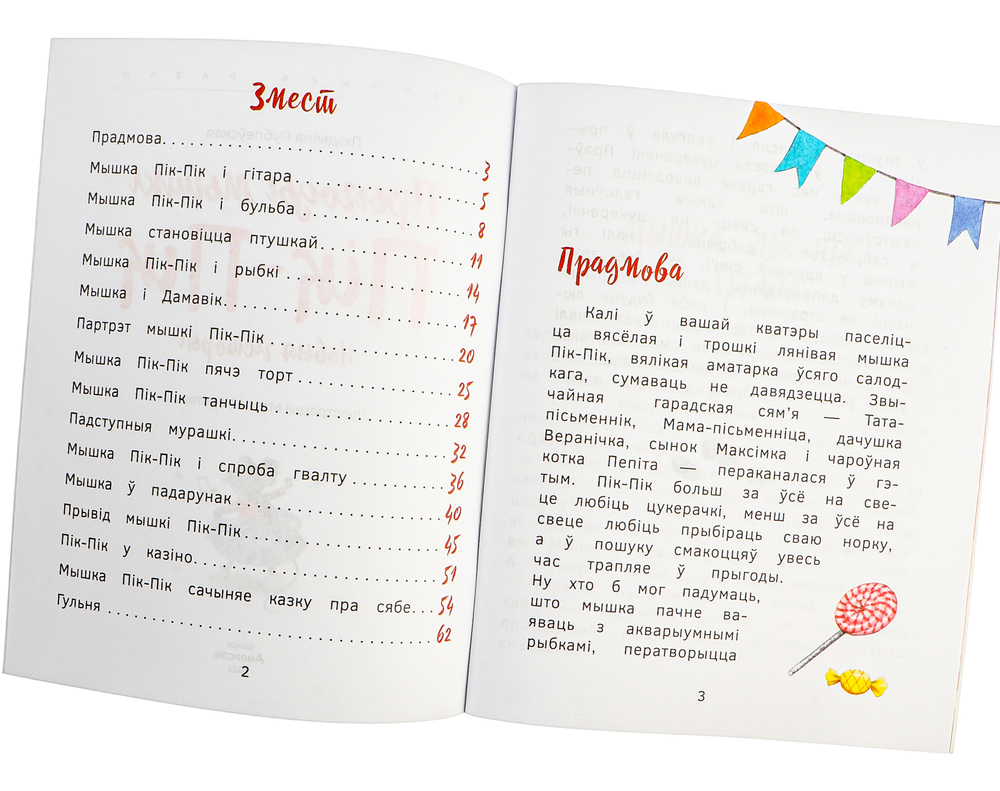 Змест
Прадмова. . . . . . . . . . . . . . . . . . . . . . . . . . . . . . . . 3
Мышка Пік-Пік і гітара. . . . . . . . . . . . . . . . . . . . 5
Мышка Пік-Пік і бульба . . . . . . . . . . . . . . . . . . . 8
Мышка становіцца птушкай. . . . . . . . . . . . . . . . 11
Мышка Пік-Пік і рыбкі . . . . . . . . . . . . . . . . . . . . 14
Мышка і Дамавік. . . . . . . . . . . . . . . . . . . . . . . . . 17
Партрэт мышкі Пік-Пік . . . . . . . . . . . . . . . . . . . . 20
Мышка Пік-Пік пячэ торт . . . . . . . . . . . . . . . . . . 25
Мышка Пік-Пік танчыць . . . . . . . . . . . . . . . . . . . 28
Падступныя мурашкі. . . . . . . . . . . . . . . . . . . . . . 32
Мышка Пік-Пік і спроба гвалту . . . . . . . . . . . . . 36
Мышка ў падарунак . . . . . . . . . . . . . . . . . . . . . . 40
Прывід мышкі Пік-Пік . . . . . . . . . . . . . . . . . . . . . 45
Пік-Пік у казіно. . . . . . . . . . . . . . . . . . . . . . . . . . 51
Мышка Пік-Пік сачыняе казку пра сябе. . . 54
Гульня . . . . . . . . . . . . . . . . . . . . . . . . . . . . . . . . . . 62
2
Прадмова
Калі ў вашай кватэры паселіц-
ца вясёлая і трошкі лянівая мышка
Пік-Пік, вялікая аматарка ўсяго салод-
кага, сумаваць не давядзецца. Звы-
чайная гарадская сям’я — Тата-
пісьменнік, Мама-пісьменніца, дачушка
Веранічка, сынок Максімка і чароўная
котка Пепіта — пераканалася ў гэ-
тым. Пік-Пік больш за ўсё на све-
це любіць цукерачкі, менш за ўсё на
свеце любіць прыбіраць сваю норку,
а ў пошуку смакоццяў увесь
час трапляе ў прыгоды.
Ну хто б мог падумаць,
што мышка пачне ва-
яваць з акварыумнымі
рыбкамі, ператворыцца
3